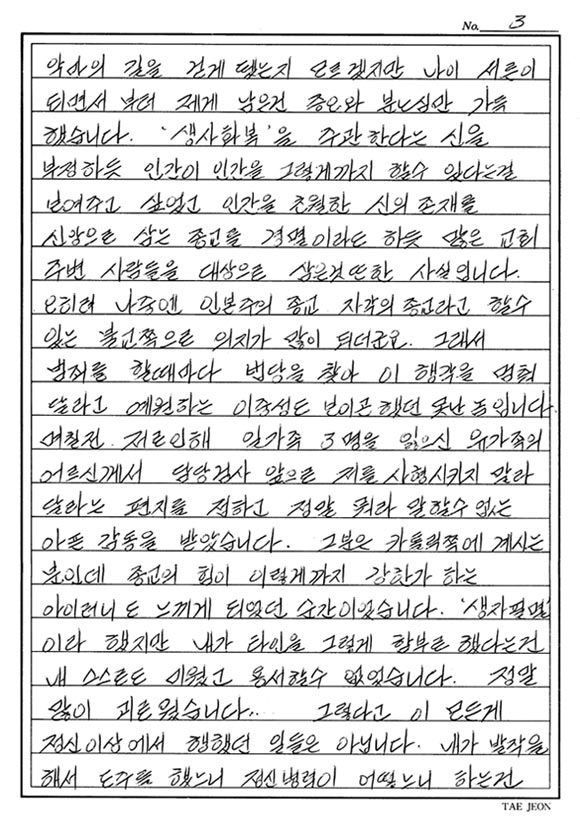 No. 3
악마의 길을 걷게 됐는지 모르겠지만 나이 서른이
되면서 부터 제게 남은건 증오와 분노심만 가득
했습니다. '생사화복'을 주관한다는 신을
부정하듯 인간이 인간을 그렇게까지 할수 있다는걸
보여주고 싶었고 인간을 초월한 신의 존재를
신앙으로 삼는 종교를 경멸이라도 하듯 많은 교회
주변 사람들을 대상으로 삼은것 또한 사실입니다.
오히려 나중엔 인본주의 종교 자각의 종교라고 할수
있는 불교쪽으로 의지가 많이 되더군요. 그래서
범죄를 할때마다 법당을 찾아 이 행각을 멈춰
달라고 애원하는 이중성도 보이곤했던 못난 놈입니다.
며칠전 저로인해 일가족 3명을 잃으신 유가족의
어르신께서 담당검사 앞으로 저를 사형시키지 말라
달라는 편지를 접하고 정말 뭐라 말할수 없는
아픈 감동을 받았습니다. 그분은 카톨릭쪽에 계시는
분인데 종교의 힘이 이렇게까지 강한가 하는
아이러니도 느끼게 되었던 순간이었습니다. '생자필멸'
이라 했지만 내가 타인을 그렇게 함부로 했다는건
내 스스로도 미웠고 용서할수 없었습니다. 정말
많이 괴로웠습니다.. 그렇다고 이 모든게
정신이상에서 행했던 일들은 아닙니다. 내가 발작을
해서 도주를 했느니 정신병력이 어떻느니 하는건
TAE JEON